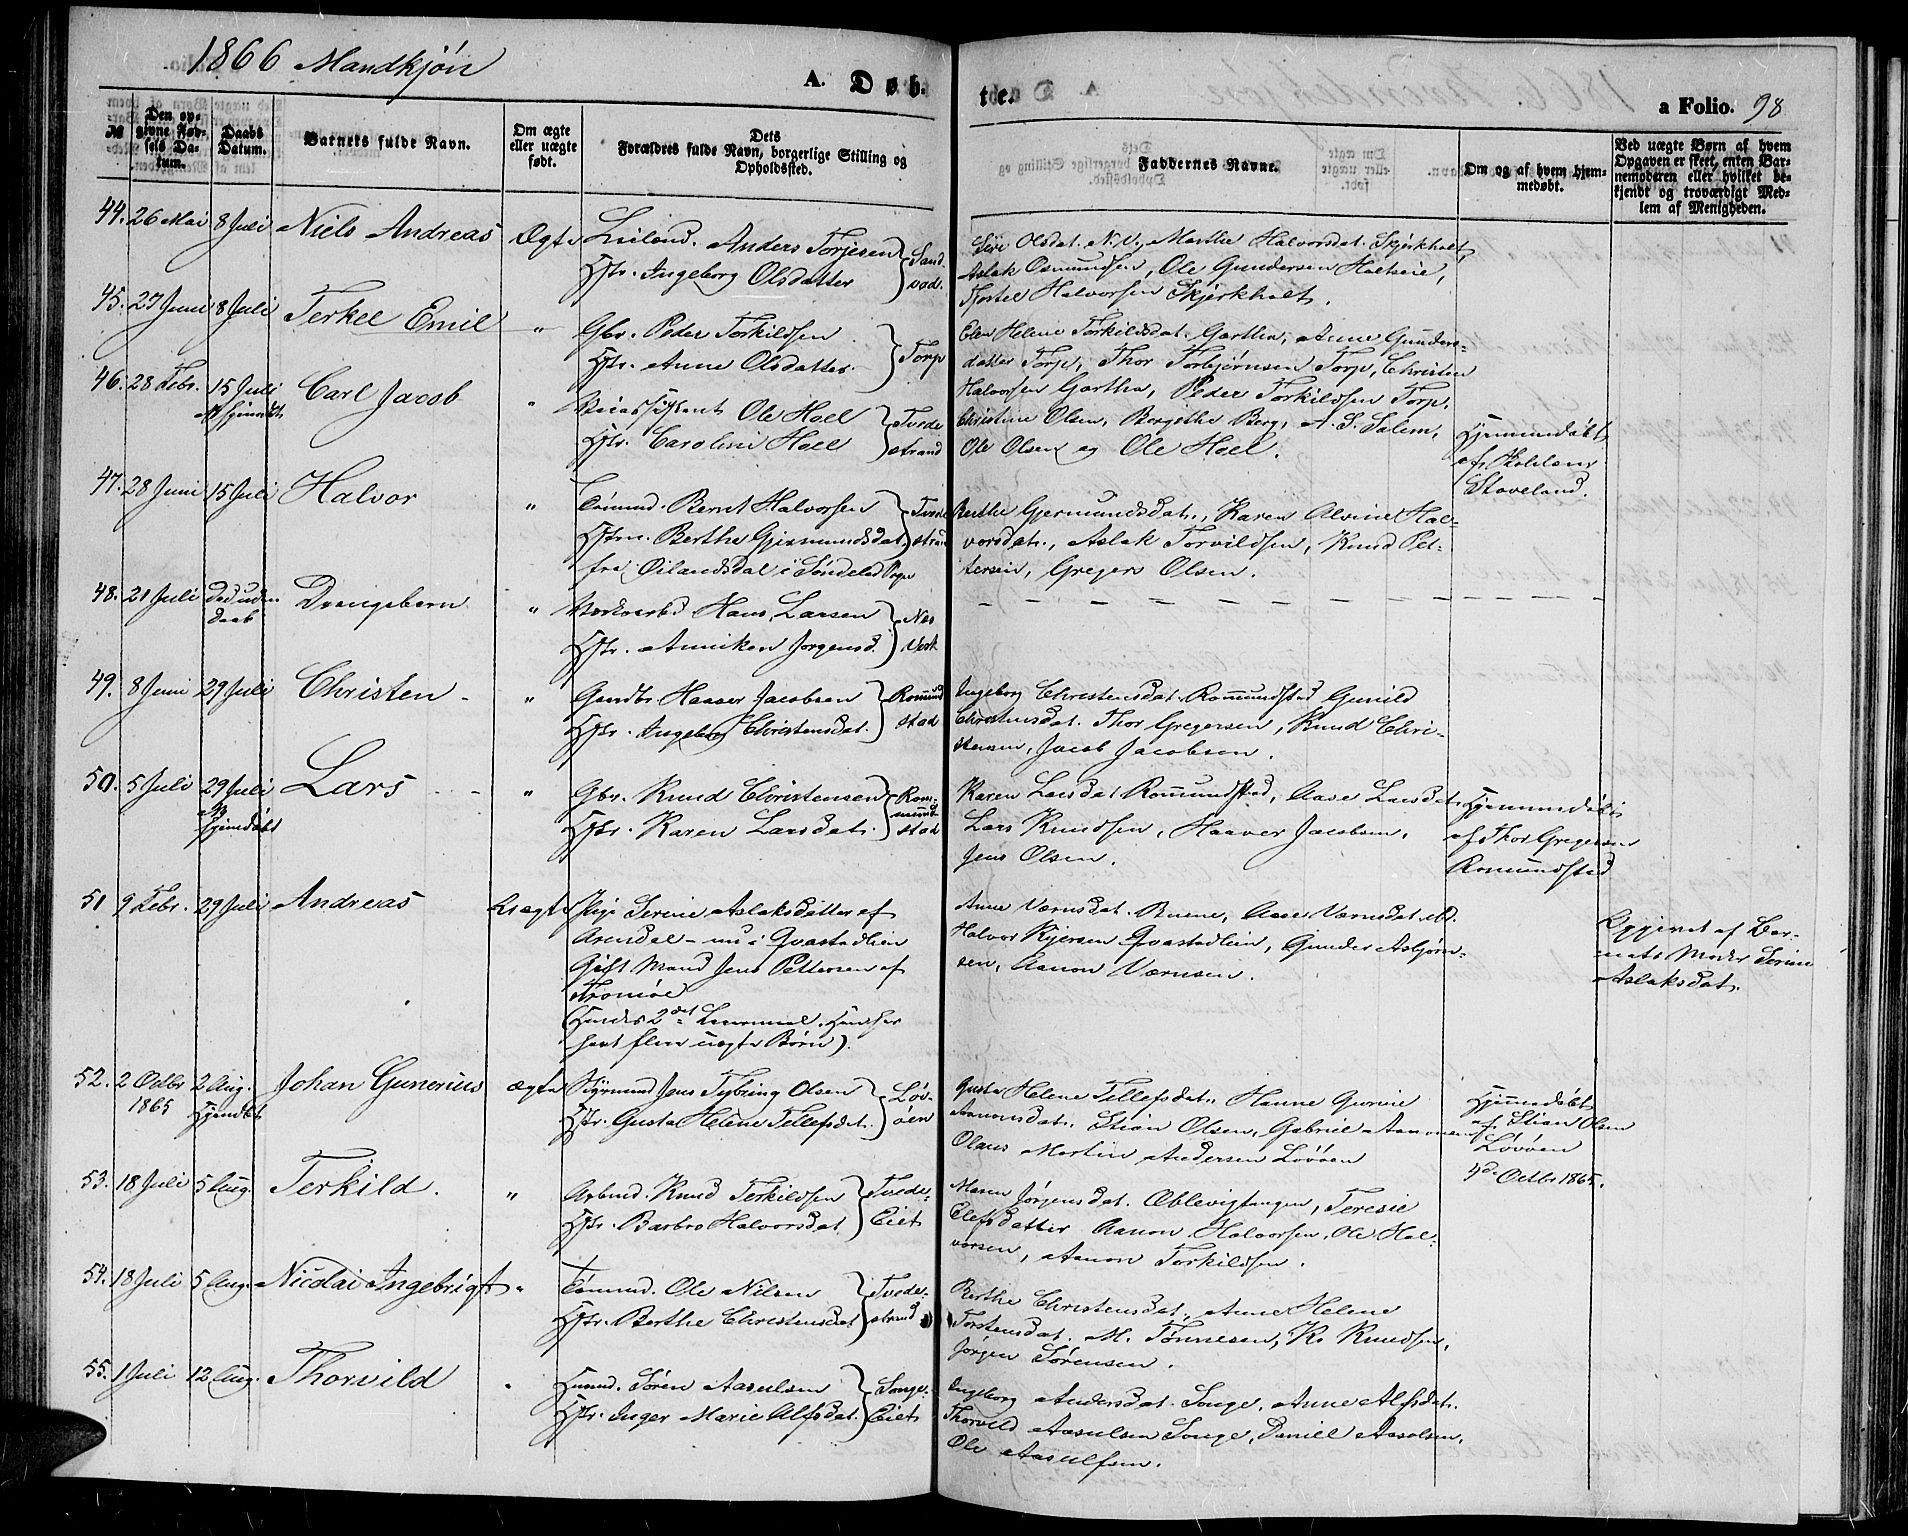 1866 Mandkjøn
A. Døb-
te.
a Folio. 98
№
Den opgivne Fødsels Datum.
Daabs Datum.
Barnets fulde Navn.
Om ægte eller uægte født.
Dets Forældres fulde Navn, borgerlige Stilling og Opholdssted.
Faddernes Navne.
Om og af hvem hjemmedøbt.
Ved uægte Børn af hvem Opgaven er skeet, enten Barnemoderen eller hvilket bekjendt og troværdigt Medlem af Menigheden.
44. 26 Mai 8 Juli Niels Andreas Ægte
Anders Torjesen
Hstr. Ingeborg Olsdatter
Siri Olsdat. Marthe Halvorsdat. Skjerkholt,
Aslak Osmundsen, Ole Gundersen
Halvorsen Skjerkholt.
45. 27 Juni 8 Juli Terkel Emil "
Gbr. Peder Torkildsen
Hstr. Anne Olsdatter. Torp
Elen Helene Torkildsdat. Gartha, Anne Gunders-
datter Torp, Thor Torbjørnsen Torp, Christen
Halvorsen Gartha, Peder Torkildsen Torp.
46. 28 Febr. 15 Juli Carl Jacob "
Ole Hoel
Hstr. Caroline Hoel
Tvede
strand
Christine Olsen, Borgithe Berg, A. S. Salem,
Ole Olsen og Ole Hoel.
Hjemmedøbt
af
Staveland.
47. 28 Juni 15 Juli Halvor "
Tømmd. Bernt Halvorsen
Hstru. Berthe Gjermundsdat.
fra Øilandsdal i Søndeled
Tvede
Berthe Gjermundsdat., Karen Alvine Hal-
vorsdat., Aslak Torvildsen, Knud Pet-
tersen, Gregers Olsen.
48. 21 Juli Død uden
Daab
Drengebarn "
Hans Larsen
Hstr. Anniken Jørgensd.
Nes
Verk
49. 8 Juni 29 Juli Christen - "
Gaardbr. Haaver Jacobsen
Hstr. Ingeborg Christensdat.
Romund
stad
Ingeborg Christensdat. Romundstad, Gunild
Christensdat. Thor Gregersen, Knud Chri-
stensen, Jacob Jacobsen.
50. 5 Juli 29 Juli
Hjemdøbt
Lars "
Gbr. Knud Christensen
Hstr. Karen Larsdat.
Rom-
mund
stad
Karen Larsdat. Romundstad, Aase Larsdat.
Lars Knudsen, Haaver Jacobsen,
Jens Olsen.
Hjemmedøbt
af Thor Gregersen
Romundstad
51 9 Febr. 29 Juli Andreas Uægte
Pige Serine Aslaksdatter af
Arendal - nu i Qvastadlien
Gift Mand Jens Pettersen af
Tromøe
(Hendes 2det Leiermaal. Han har
havt flere uægte Børn).
Anne Værnsdat. Buene, Aase Værnsdat. ibd.
Halvor Kjersen Qvastadlien, Gunder Asbjørn-
sen, Aanon Værnsen.
Opgivet af Bar-
nets Moder Serine
Aslaksdat.
52. 2 Octbr
1865
2 Aug.
Hjemdøbt
Johan Gunerius ægte
Styrmand Jens Tybring Olsen
Hstr. Gusta Helene Tellefsdat.
Løv-
øen
Gusta Helene Tellefsdat., Hanne Gurine
Aanonsdat., Stian Olsen, Gabriel Aanonsen
Olaus Martin Andersen Løvøen
Hjemmedøbt
af Stian Olsen
Løvøen
4de Octbr 1865.
53. 18 Juli 5 Aug. Terkild. "
Arbmd. Knud Terkildsen
Hstr. Barbro Halvorsdat.
Tvede-
Eiet
Maren Jørgensdat. Oblevigtangen, Teresie
Elefsdatter Aanon Halvorsen, Ole Hal-
vorsen, Aanon Torkildsen.
54. 18 Juli 5 Aug. Nicolai Ingebrigt "
Tømmd. Ole Nilsen
Hstr. Berthe Christensdat
Tvede-
strand
Berthe Christensdat., Anne Helene
Torstensdat. M. Tønnesen, K. Knudsen,
Jørgen Sørensen.
55. 1 Juli 12 Aug. Thorvild "
Huusmd. Søren Aasulsen
Hstr. Inger Marie Alfsdat.
Songe-
Eiet
Ingeborg Andersdat. Songe, Anne Alfsdat.
Thorvild Aasulsen Songe, Daniel Aasolsen,
Ole Aasulfsen.